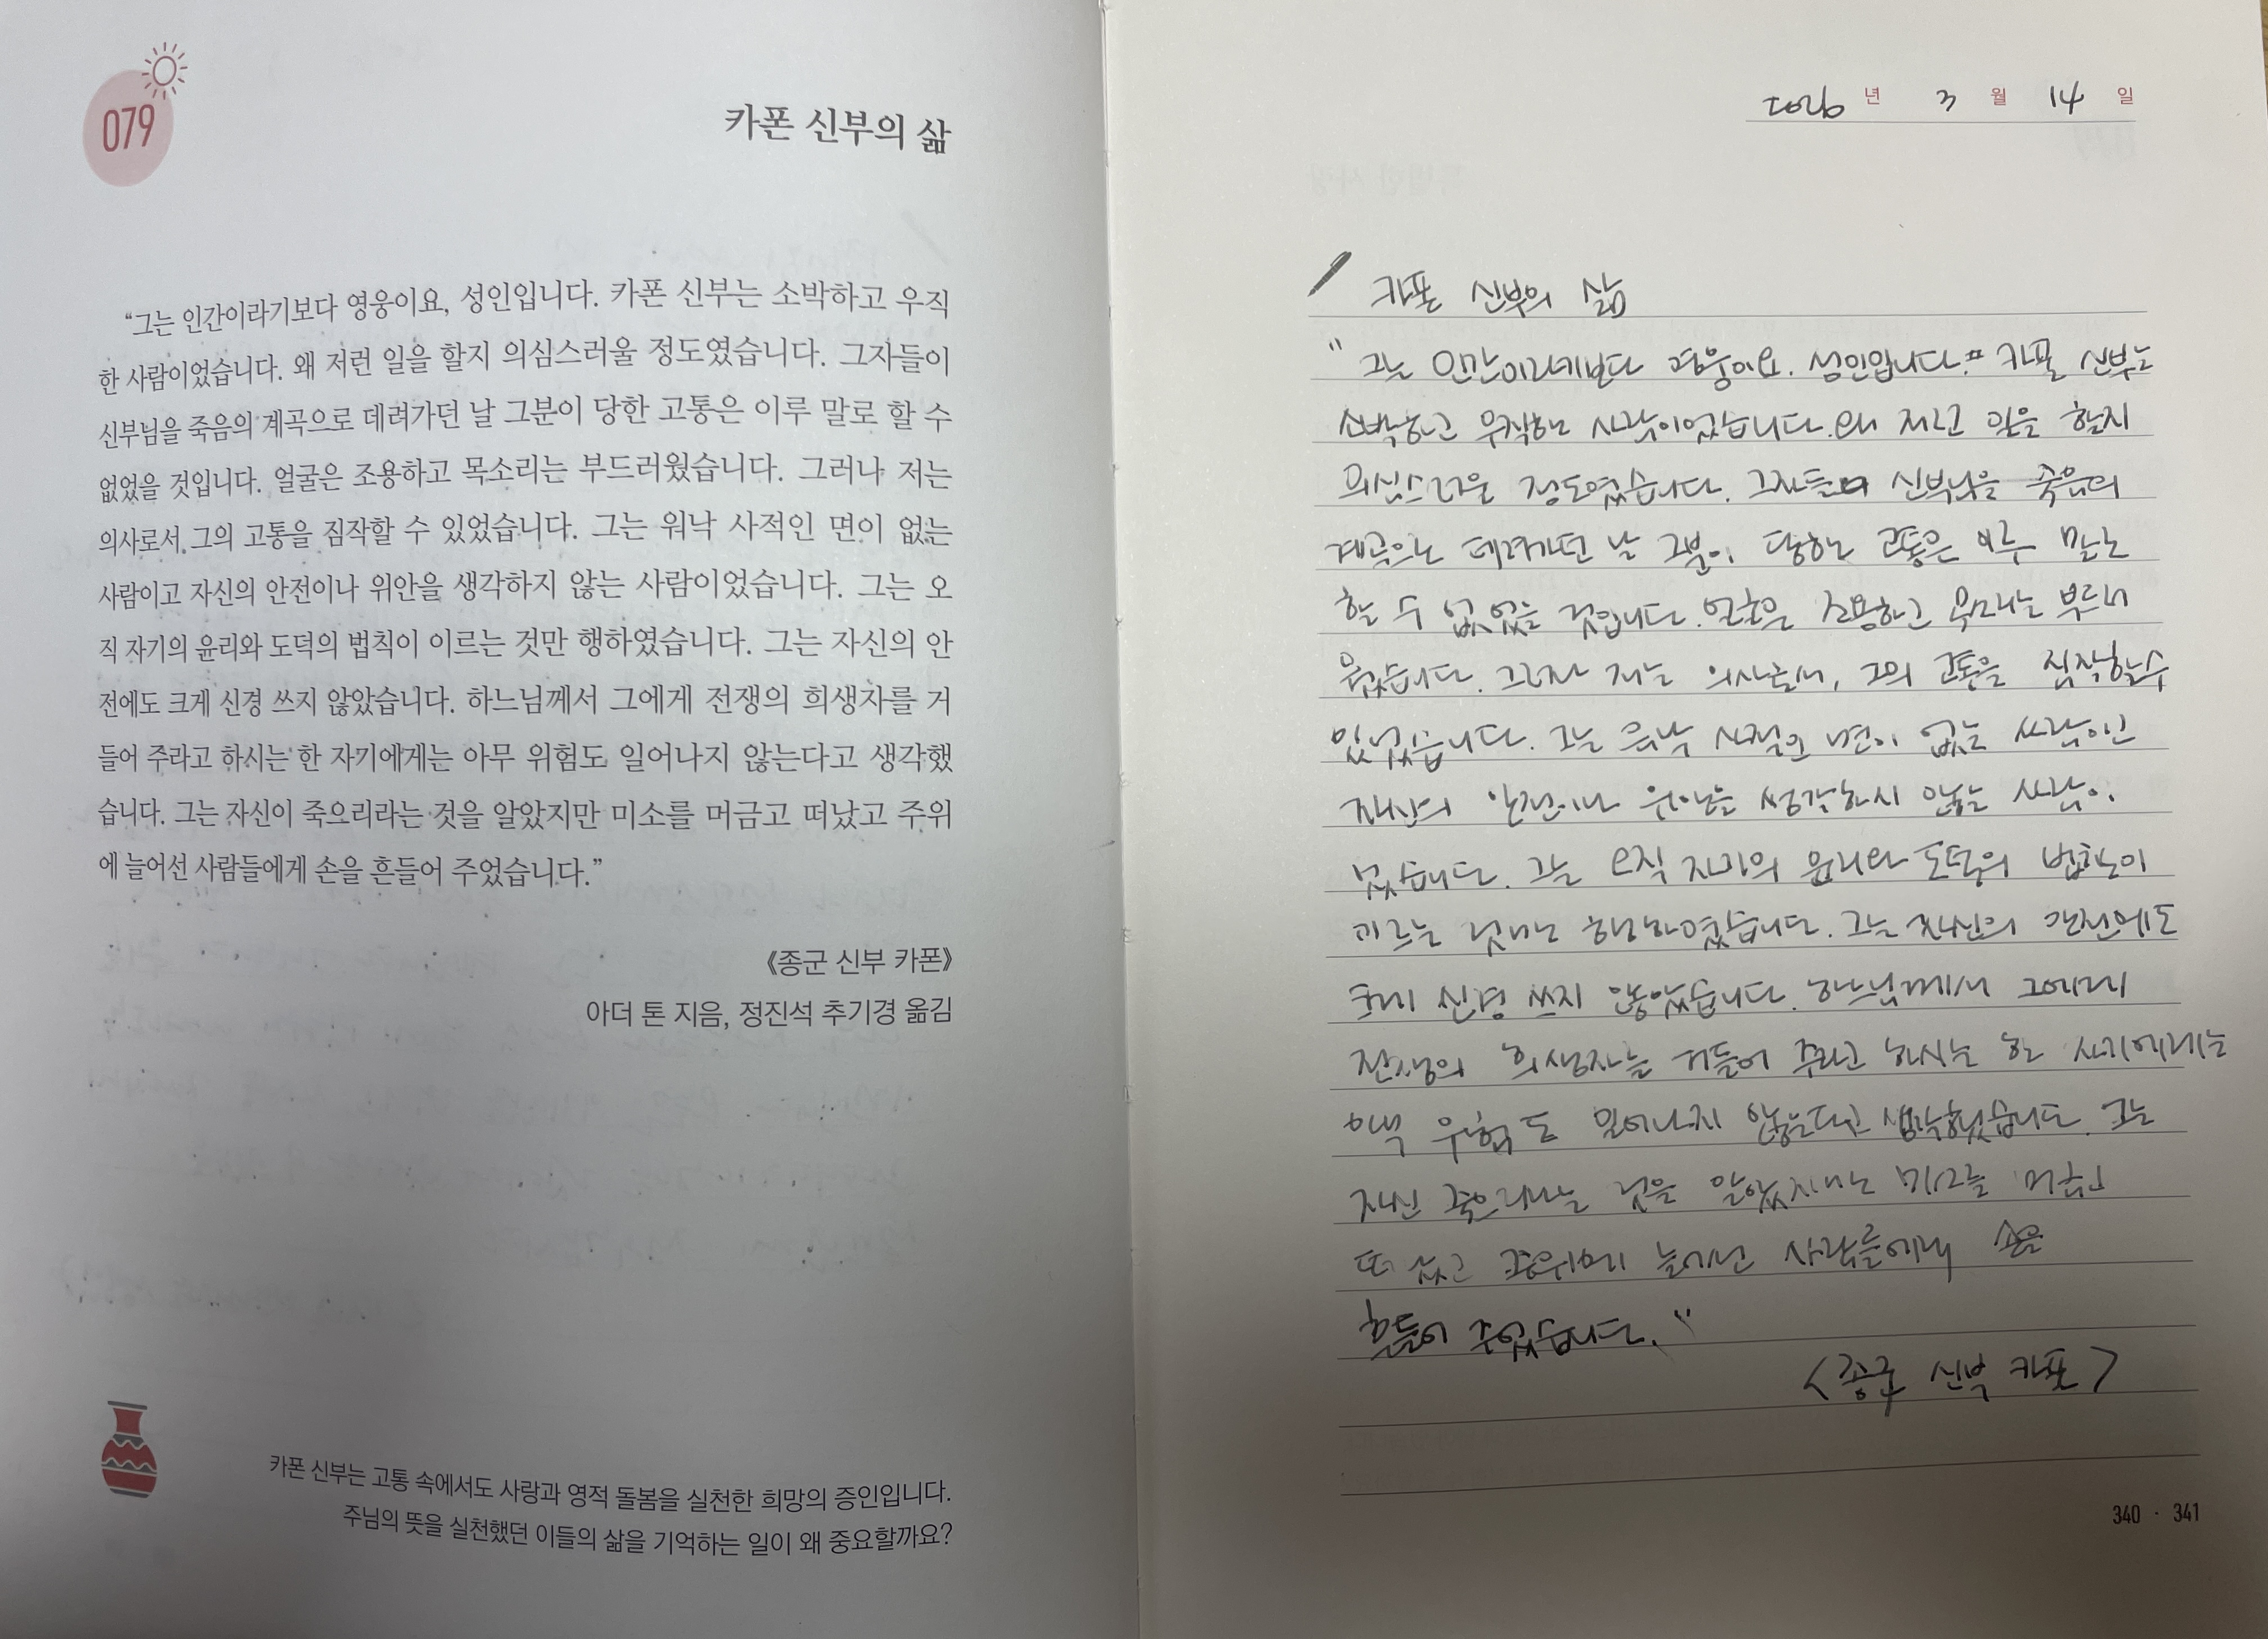 079
카폰 신부의 삶
“그는 인간이라기보다 영웅이요, 성인입니다. 카폰 신부는 소박하고 우직
한 사람이었습니다. 왜 저런 일을 할지 의심스러울 정도였습니다. 그자들이
신부님을 죽음의 계곡으로 데려가던 날 그분이 당한 고통은 이루 말로 할 수
없었을 것입니다. 얼굴은 조용하고 목소리는 부드러웠습니다. 그러나 저는
의사로서, 그의 고통을 짐작할 수 있었습니다. 그는 워낙 사적인 면이 없는
사람이고 자신의 안전이나 위안을 생각하지 않는 사람이었습니다. 그는 오
직 자기의 윤리와 도덕의 법칙이 이르는 것만 행하였습니다. 그는 자신의 안
전에도 크게 신경 쓰지 않았습니다. 하느님께서 그에게 전쟁의 희생자를 거
들어 주라고 하시는 한 자기에게는 아무 위험도 일어나지 않는다고 생각했
습니다. 그는 자신이 죽으리라는 것을 알았지만 미소를 머금고 떠났고 주위
에 늘어선 사람들에게 손을 흔들어 주었습니다.”
《종군 신부 카폰》
아더 톤 지음, 정진석 추기경 옮김
카폰 신부는 고통 속에서도 사랑과 영적 돌봄을 실천한 희망의 증인입니다.
주님의 뜻을 실천했던 이들의 삶을 기억하는 일이 왜 중요할까요?
2026 년 3 월 14 일
카폰 신부의 삶
" 그는 인간이라기보다 영웅이요. 성인입니다. 카폰 신부는
소박하고 우직한 사람이었습니다. 왜 저런 일을 할지
의심스러울 정도였습니다. 그자들이 신부님을 죽음의
계곡으로 데려가던 날 그분이 당한 고통은 이루 말로
할 수 없었을 것입니다. 얼굴은 조용하고 목소리는 부드러
웠습니다. 그러나 저는 의사로서, 그의 고통을 짐작할수
있었습니다. 그는 워낙 사적인 면이 없는 사람이고
자신의 안전이나 위안을 생각하지 않는 사람이
었습니다. 그는 오직 자기의 윤리와 도덕의 법칙이
이르는 것만 행하였습니다. 그는 자신의 안전에도
크게 신경 쓰지 않았습니다. 하느님께서 그에게
전쟁의 희생자를 거들어 주라고 하시는 한 자기에게는
위험도 일어나지 않는다고 생각했습니다. 그는
자신 죽으리라는 것을 알았지만 미소를 머금고
떠났고 주위에 늘어선 사람들에게 손을
흔들어 주었습니다."
<종군 신부 카폰>
340 · 341